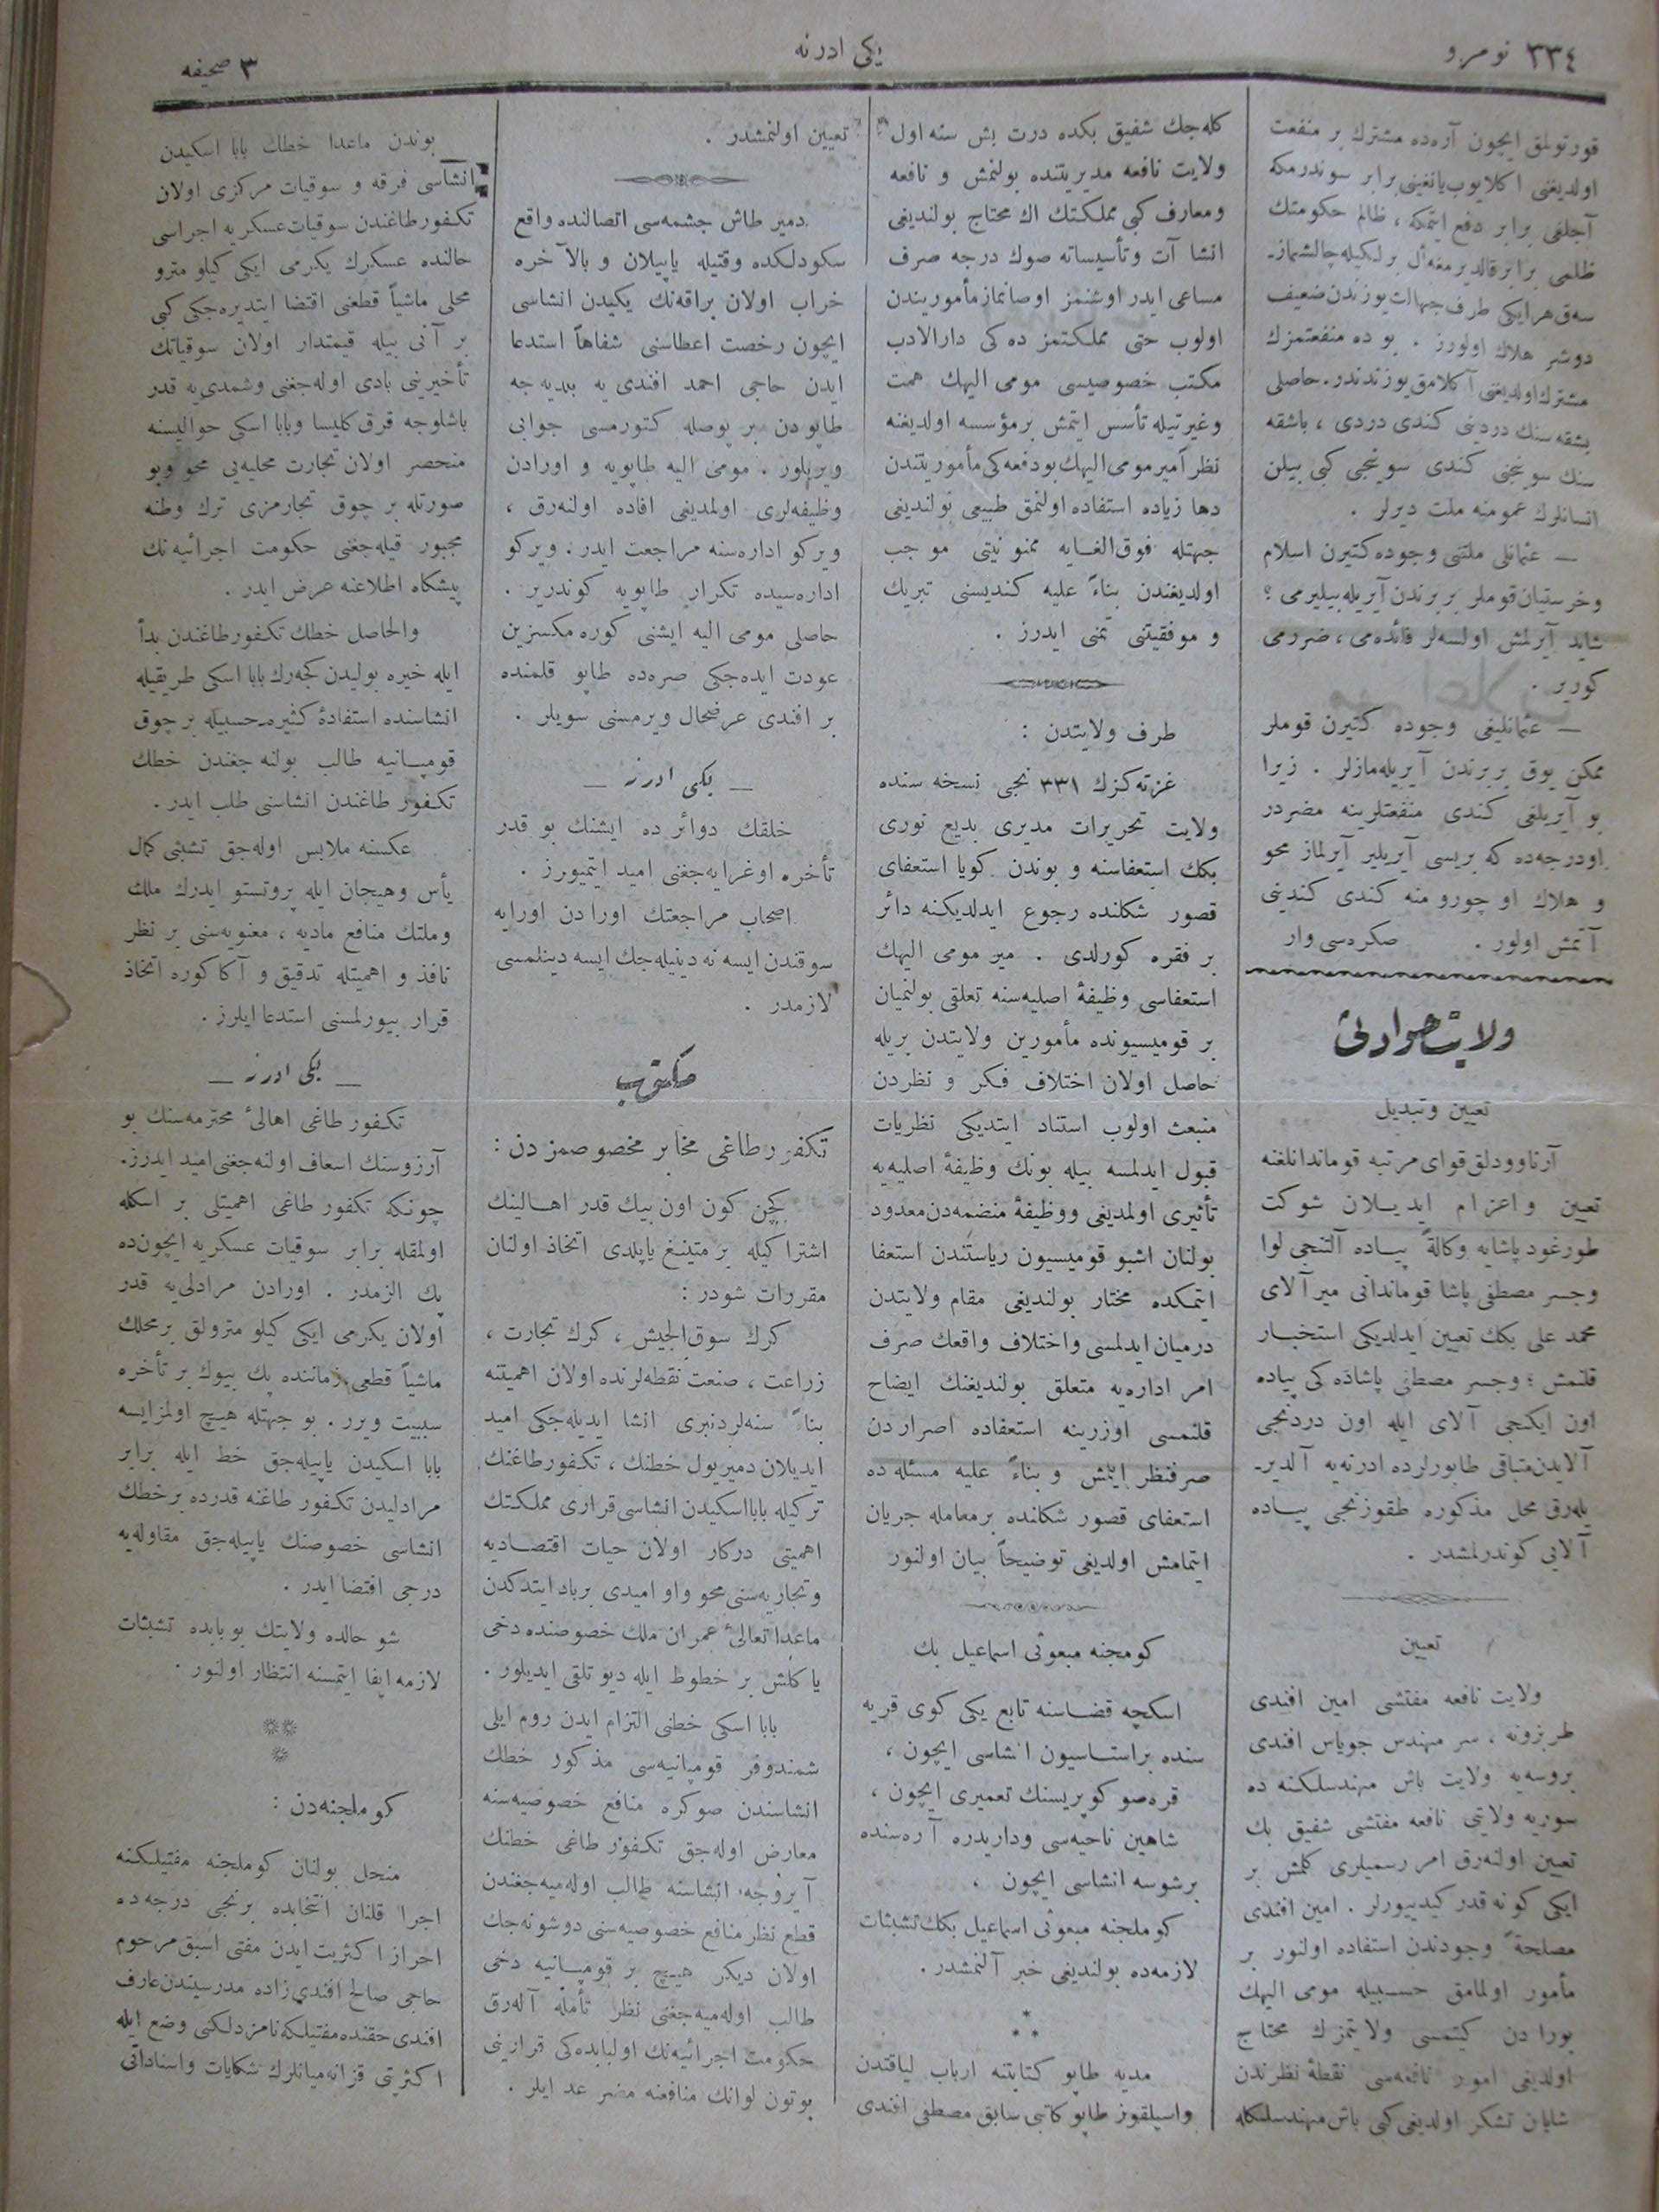 ٣٣٤ نومرو
یکی ادرنه
٣ صحیفه
قورتولمق ایچون آره‌ده مشترك بر منفعت
اولدیغنی اکلایوب یانغینی برابر سوندرمکه
آچلغی برابر دفع ایتمکه ، ظالم حکومتك
ظلمی برابر قالدیرمغه ال برلکیله چالیشمازـ
سه‌ق هر ایکی طرف جهالت یوزندن ضعیف
دوشر هلاك اولورز . بو ده منفعتمزك
مشترك اولدیغنی آکلامق یوزندندر. حاصلی
بشقه‌سنك دردینی کندی دردی ، باشقه
سنك سونجنی کندی سونجی کبی بیلن
انسانلرك عمومنه ملت دیرلر .
— عثمانلی ملتنی وجوده کتیرن اسلام
وخرستیان قوملر بربرندن آیریله‌بیلیرمی ؟
شاید آیرلمش اولسه‌لر فائده‌می ، ضررمی
کوریر .
— عثمانلیغی وجوده کتیرن قوملر
ممکن یوق بربرندن آیریله‌مازلر . زیرا
بو آیریلغی کندی منفعتلرینه مضردر
اودرجه‌ده که بریسی آیریلیر آیرلماز محو
و هلاك اوچورومنه کندی کندینی
آتمش اولور . صکره‌سی وار
ولایت حوادثی
تعیین وتبدیل
آرناوودلق قوای مرتبه قوماندانلغنه
تعیین واعزام ایدیلان شوکت
طورغود پاشایه وکالةً پیاده آلتنجی لوا
وجسر مصطفی پاشا قوماندانی میر آلای
محمد علی بكك تعیین ایدلدیکی استخبار
قلنمش ؛ وجسر مصطفی پاشاده کی پیاده
اون ایکنجی آلای ایله اون دردنجی
آلایدن متباقی طابورلرده ادرنه‌یه آلدیرـ
یله‌رق محل مذکوره طقوزنجی پیاده
آلایی کوندرلمشدر .
تعیین
ولایت نافعه مفتشی امین افندی
طربزونه ، سر مهندس جویاس افندی
بروسه‌یه ولایت باش مهندسلکنه ده
سوریه ولایتی نافعه مفتشی شفیق بك
تعیین اولنه‌رق امر رسمیلری کلمش بر
ایکی کونه قدر کیدییورلر . امین افندی
مصلحةً وجودندن استفاده اولنور بر
مأمور اولمامق حسبیله مومی الیهك
بورادن کیتمسی ولایتمزك محتاج
اولدیغی امور نافعه‌سی نقطهٔ نظرندن
شایان تشکر اولدیغی کبی باش مهندسلکله
کله‌جك شفیق بکده درت بش سنه اول
ولایت نافعه مدیریتنده بولنمش و نافعه
ومعارف کبی مملکتك اك محتاج بولندیغی
انشا آت وتأسیساته صوك درجه صرف
مساعی ایدر اوشنمز اوصانماز مأموریندن
اولوب حتی مملکتمز ده کی دارالادب
مکتب خصوصیسی مومی الیهك همت
وغیرتیله تأسس ایتمش برمؤسسه اولدیغنه
نظراً میر مومی الیهك بودفعه کی مأموریتندن
دها زیاده استفاده اولنمق طبیعی بولندیغی
جهتله فوق‌الغایه ممنونیتی موجب
اولدیغندن بناءً علیه کندیسنی تبریك
و موفقیتنی تمنی ایدرز .
طرف ولایتدن :
غزته‌کزك ٣٣١ نجی نسخه سنده
ولایت تحریرات مدیری بدیع نوری
بكك استعفاسنه و بوندن کویا استعفای
قصور شکلنده رجوع ایدلدیکنه دائر
بر فقره کورلدی . میر مومی الیهك
استعفاسی وظیفهٔ اصلیه‌سنه تعلقی بولنمیان
بر قومیسیونده مأمورین ولایتدن بریله
حاصل اولان اختلاف فکر و نظردن
منبعث اولوب استناد ایتدیکی نظریات
قبول ایدلمسه بیله بونك وظیفهٔ اصلیه‌یه
تأثیری اولمدیغی ووظیفهٔ منضمه‌دن معدود
بولنان اشبو قومیسیون ریاستندن استعفا
ایتمکده مختار بولندیغی مقام ولایتدن
درمیان ایدلمسی واختلاف واقعك صرف
امر اداره‌یه متعلق بولندیغنك ایضاح
قلنمسی اوزرینه استعفاده اصراردن
صرفنظر ایتمش وبناءً علیه مسئله ده
استعفای قصور شکلنده برمعامله جریان
ایتمامش اولدیغی توضیحاً بیان اولنور
کومجنه مبعوثی اسماعیل بك
اسکچه قضاسنه تابع یکی کوی قریه
سنده براستاسیون انشاسی ایچون ،
قره‌صو کوپریسنك تعمیری ایچون ،
شاهین ناحیه‌سی وداریدره آره‌سنده
برشوسه انشاسی ایچون ،
کوملجنه مبعوثی اسماعیل بكك تشبثات
لازمه‌ده بولندیغی خبر آلنمشدر .
مدیه طاپو کتابتنه ارباب لیاقتدن
واسیلقوز طاپو کاتبی سابق مصطفی افندی
تعیین اولنمشدر .
دمیر طاش چشمه‌سی اتصالنده واقع
سکودلکده وقتیله یاپیلان و بالآخره
خراب اولان براقه‌نك یکیدن انشاسی
ایچون رخصت اعطاسنی شفاهاً استدعا
ایدن حاجی احمد افندی یه بلدیه جه
طاپودن بر پوصله کتورمسی جوابی
ویریلور . مومی الیه طاپویه و اورادن
وظیفه‌لری اولمدیغی افاده اولنه‌رق ،
ویرکو اداره‌سنه مراجعت ایدر . ویرکو
اداره‌سیده تکرار طاپویه کوندریر .
حاصلی مومی الیه ایشنی کوره مکسزین
عودت ایده‌جکی صره‌ده طاپو قلمنده
بر افندی عرضحال ویرمسنی سویلر .
— یکی ادرنه —
خلقك دوائر ده ایشنك بو قدر
تأخره اوغرایه‌جغنی امید ایتمیورز .
اصحاب مراجعتك اورادن اورایه
سوقندن ایسه نه دینیله‌جك ایسه دینلمسی
لازمدر .
مکتوب
تکفور طاغی مخابر مخصوصمزدن :
کچن کون اون بیك قدر اهالینك
اشتراکیله بر متینغ یاپلدی اتخاذ اولنان
مقررات شودر :
کرك سوق‌الجیش ، کرك تجارت ،
زراعت ، صنعت نقطه‌لرنده اولان اهمیتنه
بناءً سنه‌لردنبری انشا ایدیله‌جکی امید
ایدیلان دمیریول خطنك ، تکفور طاغنك
ترکیله بابا اسکیدن انشاسی قراری مملکتك
اهمیتی درکار اولان حیات اقتصادیه
وتجاریه‌سنی محو واو امیدی برباد ایتدکدن
ماعدا تعالیٔ عمران ملك خصوصنده دخی
یاکلش بر خطوط ایله دیو تلقی ایدیلور .
بابا اسکی خطنی التزام ایدن روم ایلی
شمندوفر قومپانیه‌سی مذکور خطك
انشاسندن صوکره منافع خصوصیه‌سنه
معارض اوله‌جق تکفور طاغی خطنك
آیروجه انشاسنه طالب اوله‌میه‌جغندن
قطع نظر منافع خصوصیه‌سنی دوشونه‌جك
اولان دیکر هیچ بر قومپانیه دخی
طالب اوله‌میه‌جغنی نظر تأمله آله‌رق
حکومت اجرائیه‌نك اولبابده‌کی قرارینی
بوتون لوانك منافعنه مضر عد ایلر .
بوندن ماعدا خطك بابا اسکیدن
انشاسی فرقه و سوقیات مرکزی اولان
تکفور طاغندن سوقیات عسکریه اجراسی
حالنده عسکرك یکرمی ایکی کیلو مترو
محلی ماشیاً قطعنی اقتضا ایتدیره‌جکی کبی
بر آنی بیله قیمتدار اولان سوقیاتك
تأخیرینی بادی اوله‌جغنی وشمدی‌یه قدر
باشلوجه قرق کلیسا وبابا اسکی حوالیسنه
منحصر اولان تجارت محلیه‌یی محو وبو
صورتله بر چوق تجارمزی ترك وطنه
مجبور قیله‌جغنی حکومت اجرائیه‌نك
پیشکاه اطلاعنه عرض ایدر .
والحاصل خطك تکفور طاغندن بدأ
ایله خیره بولیدن کچه‌رك بابا اسکی طریقیله
انشاسنده استفادهٔ کثیره‌ـ حسبیله بر چوق
قومپانیه طالب بولنه جغندن خطك
تکفور طاغندن انشاسنی طلب ایدر .
عکسنه ملابس اوله‌جق تشبثی کمال
یأس وهیجان ایله پروتستو ایدرك ملك
وملتك منافع مادیه ، معنویه‌سنی بر نظر
نافذ و اهمیتله تدقیق و آکا کوره اتخاذ
قرار بیورلمسنی استدعا ایلرز .
— یکی ادرنه —
تکفور طاغی اهالیٔ محترمه‌سنك بو
آرزوسنك اسعاف اولنه‌جغنی امید ایدرز.
چونکه تکفور طاغی اهمیتلی بر اسکله
اولمقله برابر سوقیات عسکریه ایچون‌ده
پك الزمدر . اورادن مرادلی‌یه قدر
اولان یکرمی ایکی کیلو مترولق بر محلك
ماشیاً قطعی زماننده پك بیوك بر تأخره
سببیت ویرر . بو جهتله هیچ اولمزایسه
بابا اسکیدن یاپیله‌جق خط ایله برابر
مرادلیدن تکفور طاغنه قدرده بر خطك
انشاسی خصوصنك یاپیله‌جق مقاوله‌یه
درجی اقتضا ایدر .
شو حالده ولایتك بو بابده تشبثات
لازمه ایفا ایتمسنه انتظار اولنور .
کوملجنه‌دن :
منحل بولنان کوملجنه مفتیلکنه
اجرا قلنان انتخابده برنجی درجه ده
احراز اکثریت ایدن مفتی اسبق مرحوم
حاجی صالح افندی زاده مدرسیندن عارف
افندی حقنده مفتیلکه نامزدلکنی وضع ایله
اکثریتی قزانه‌میانلرك شکایات واسناداتی